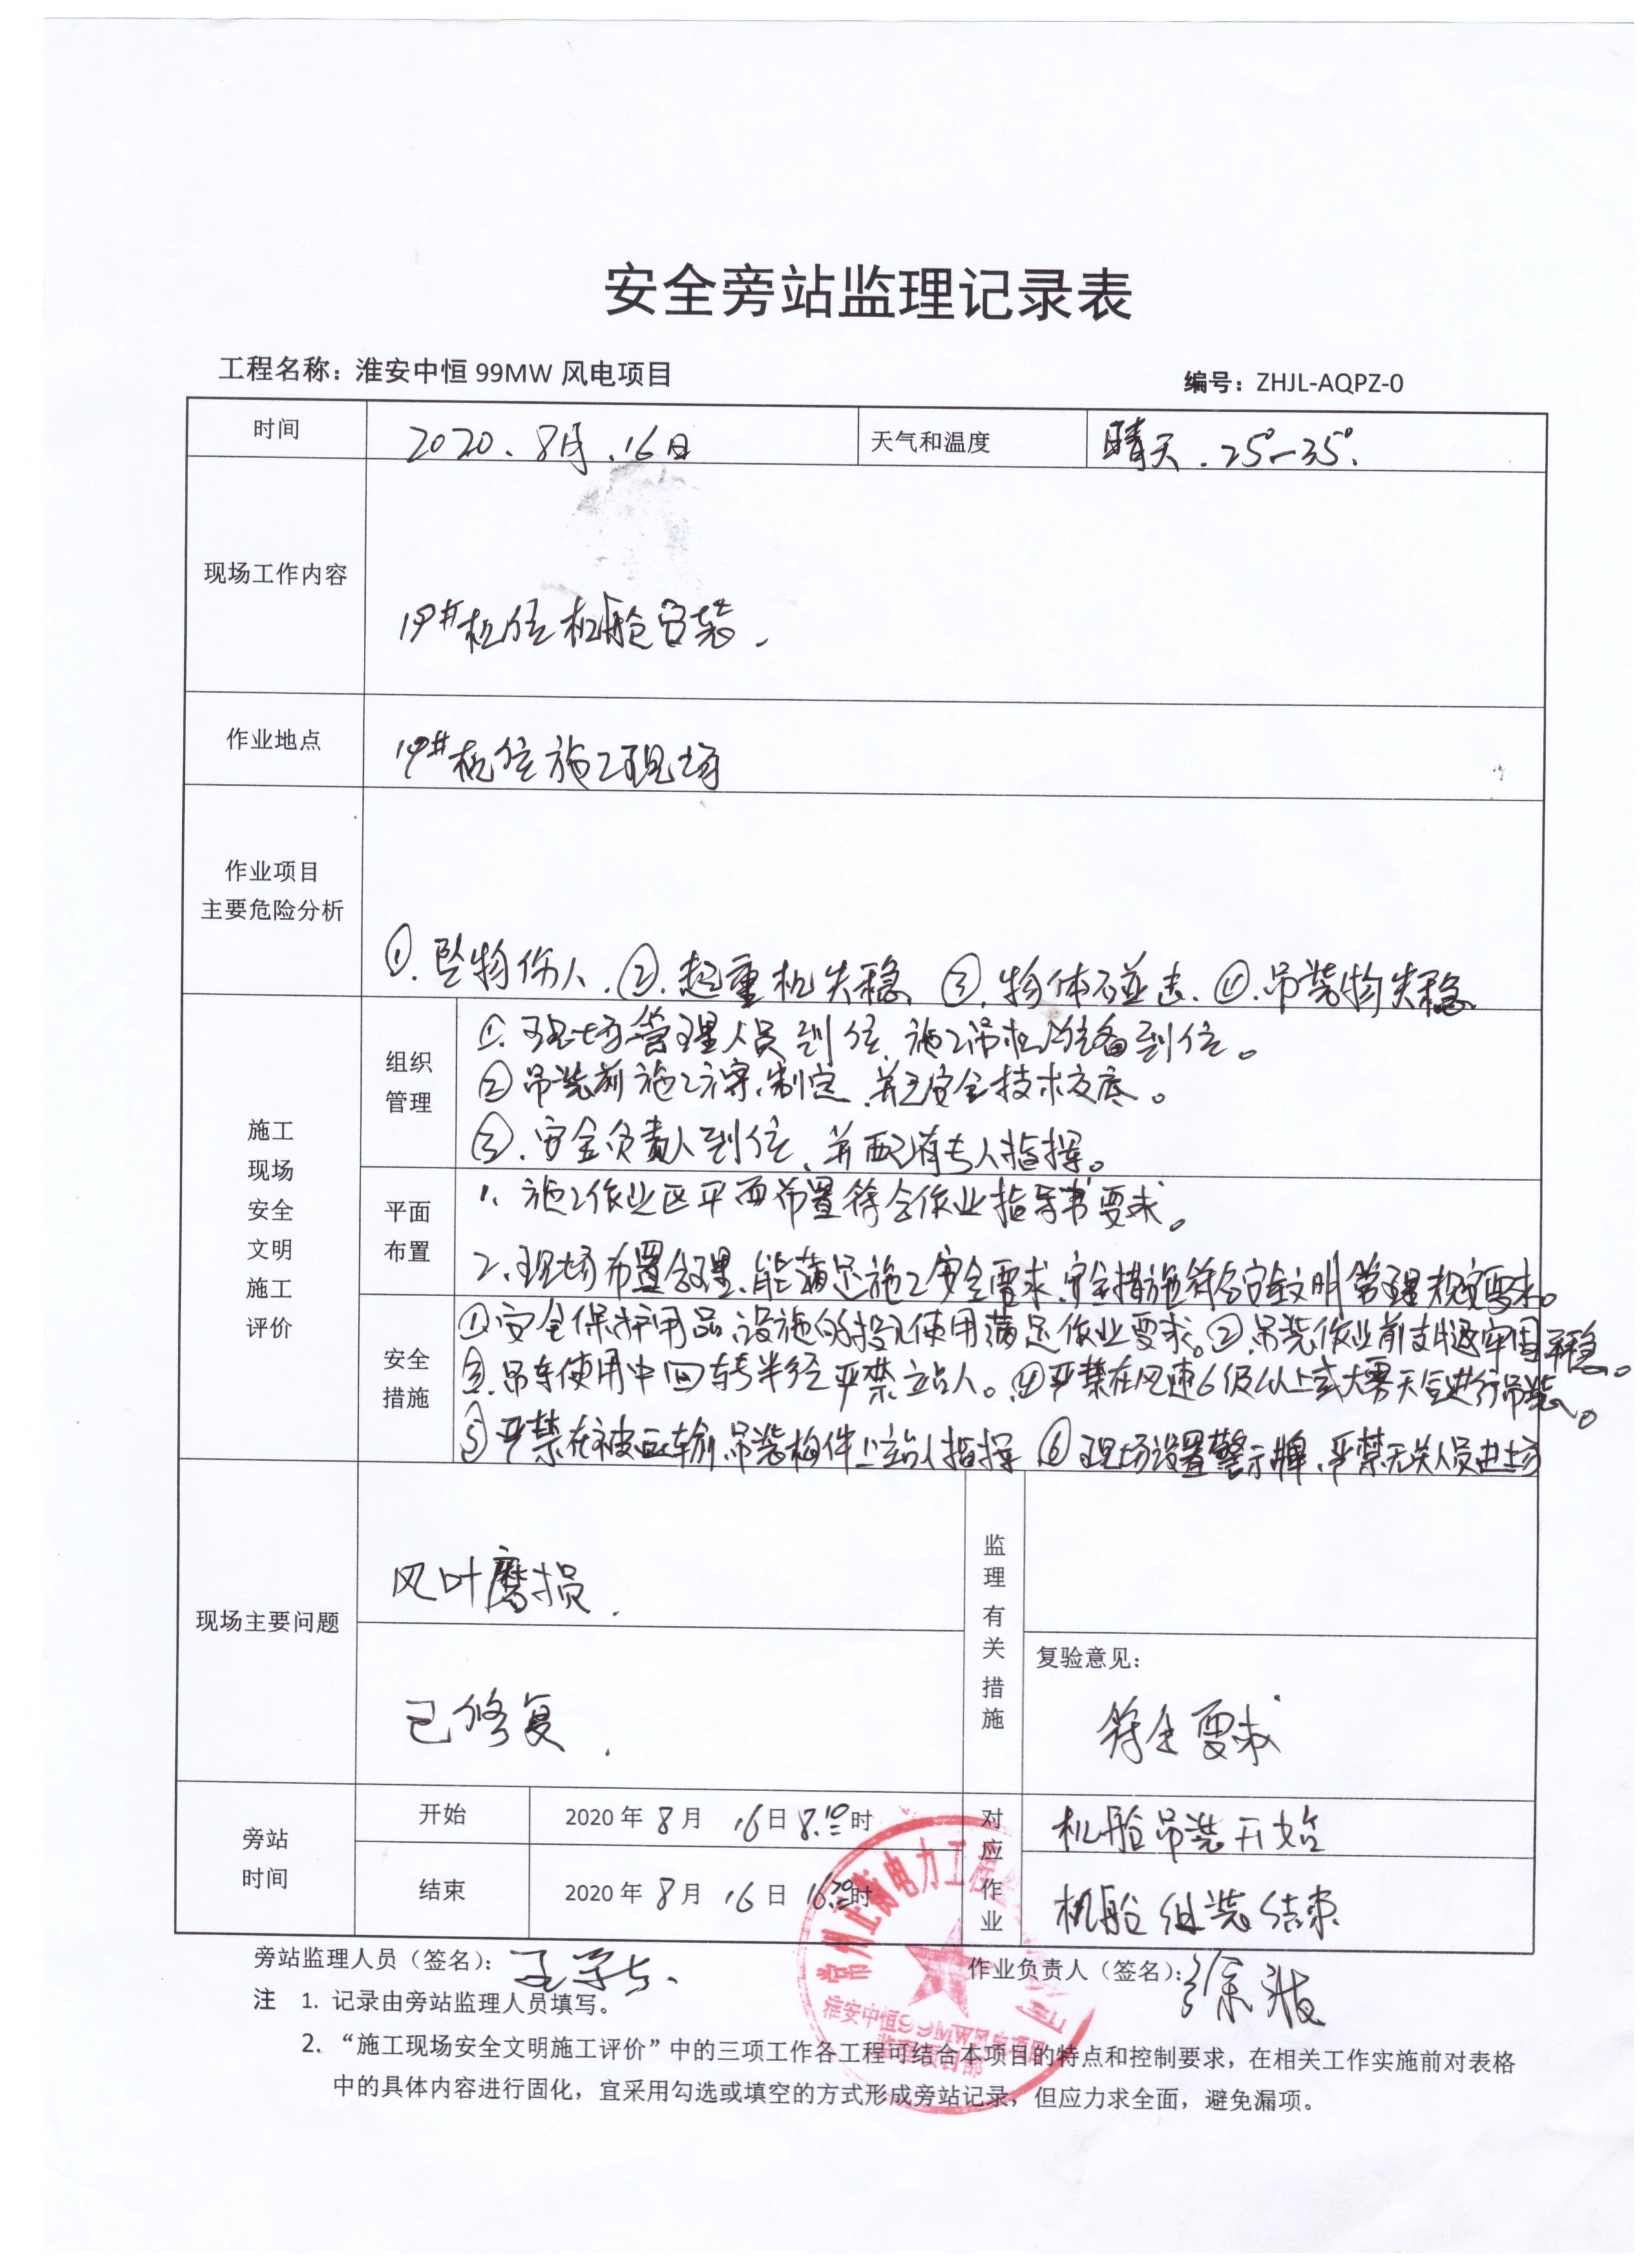 安全旁站监理记录表
工程名称：淮安中恒 99MW 风电项目
编号：ZHJL-AQPZ-0
时间
2020.8月.16日
天气和温度
晴天.25°-35°.
现场工作内容
19#机位机舱安装.
作业地点
19#机位施工现场
作业项目
主要危险分析
①.坠物伤人.②.起重机失稳.③.物体碰击.④.吊装物失稳
施工
现场
安全
文明
施工
评价
组织
管理
①.现场管理人员到位,施工吊机准备到位。
②吊装前施工方案,制定,并已安全技术交底。
③.安全负责人到位、并配有专人指挥。
平面
布置
1、施工作业区平面布置符合作业指导书要求。
2、现场布置合理,能满足施工安全需求,安全措施符合安全文明管理规定要求。
安全
措施
①安全保护用品,设施的投入使用满足作业要求。②.吊装作业前支腿牢固平稳。
③.吊车使用中回转半径严禁站人。④严禁在风速6级以上或大雾天气进行吊装。
⑤严禁在被运输吊装构件上站人指挥 ⑥现场设置警示牌,严禁无关人员进场
现场主要问题
风叶磨损.
已修复.
监
理
有
关
措
施
复验意见：
符合要求
旁站
时间
开始
2020 年 8 月 16 日 8.10 时
结束
2020 年 8 月 16 日 16.20 时
对
应
作
业
机舱吊装开始
机舱组装结束
旁站监理人员（签名）：
作业负责人（签名）：
常州正衡电力工程
淮安中恒99MW风电项目
监理项目部
注 1. 记录由旁站监理人员填写。
2. “施工现场安全文明施工评价”中的三项工作各工程可结合本项目的特点和控制要求，在相关工作实施前对表格
中的具体内容进行固化，宜采用勾选或填空的方式形成旁站记录，但应力求全面，避免漏项。